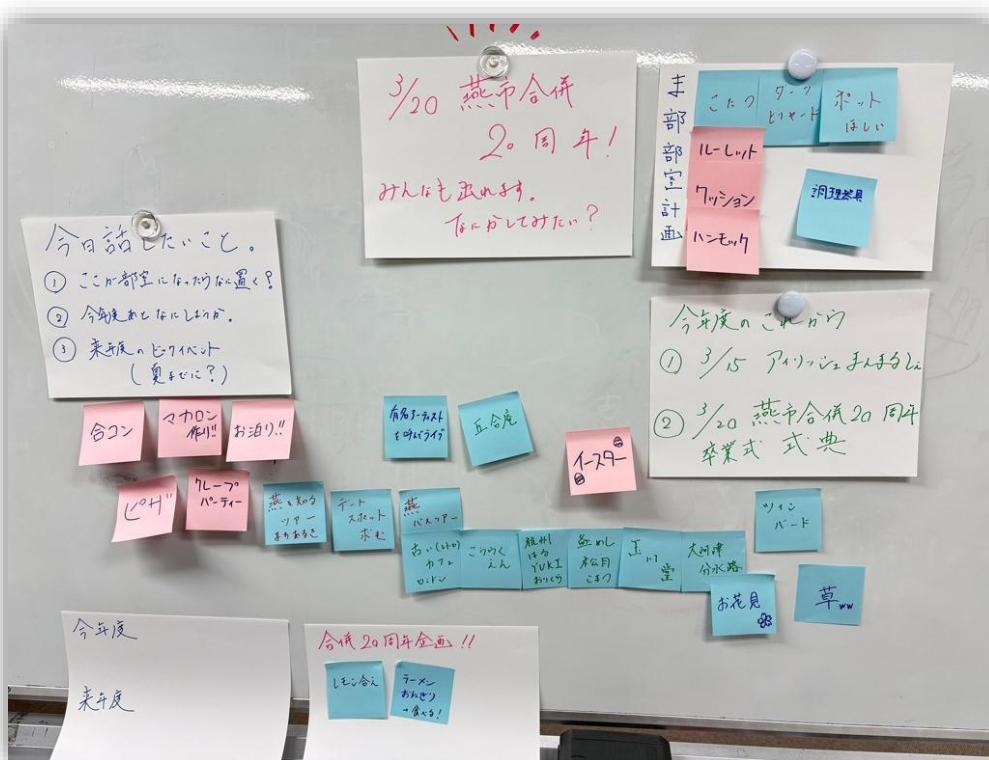 3/20 燕市合併
20周年!
みんなも出れます。
なにかしてみたい?
ま部部室計画
こたつ
ダーツ
ビリヤード
ポット
ほしい
ルーレット
クッション
ハンモック
調理器具
今日話したいこと。
① ここが部室になったらなに置く?
② 今年度あとなにしようか。
③ 来年度のビッグイベント
(夏までに?)
今年度のこれから
① 3/15 アイリッシュまんまるしぇ
② 3/20 燕市合併20周年
卒業式 式典
合コン
マカロン
作り!!
お泊り!!
ピザ
クレープ
パーティー
燕を知る
ツアー
まちあるき
デート
スポット
求む
有名アーティスト
を呼んでライブ
丘合庵
イースター
燕
バスツアー
古い(レトロ)
カフェ
ロンドン
こうらく
えん
杭州
はる
YUKI
おりくら
釜めし
松月
こまつ
玉川堂
大河津
分水路
ツイン
バード
お花見
草ww
今年度
来年度
合併20周年企画!!
レモン合え
ラーメン
おにぎり
→食べる!